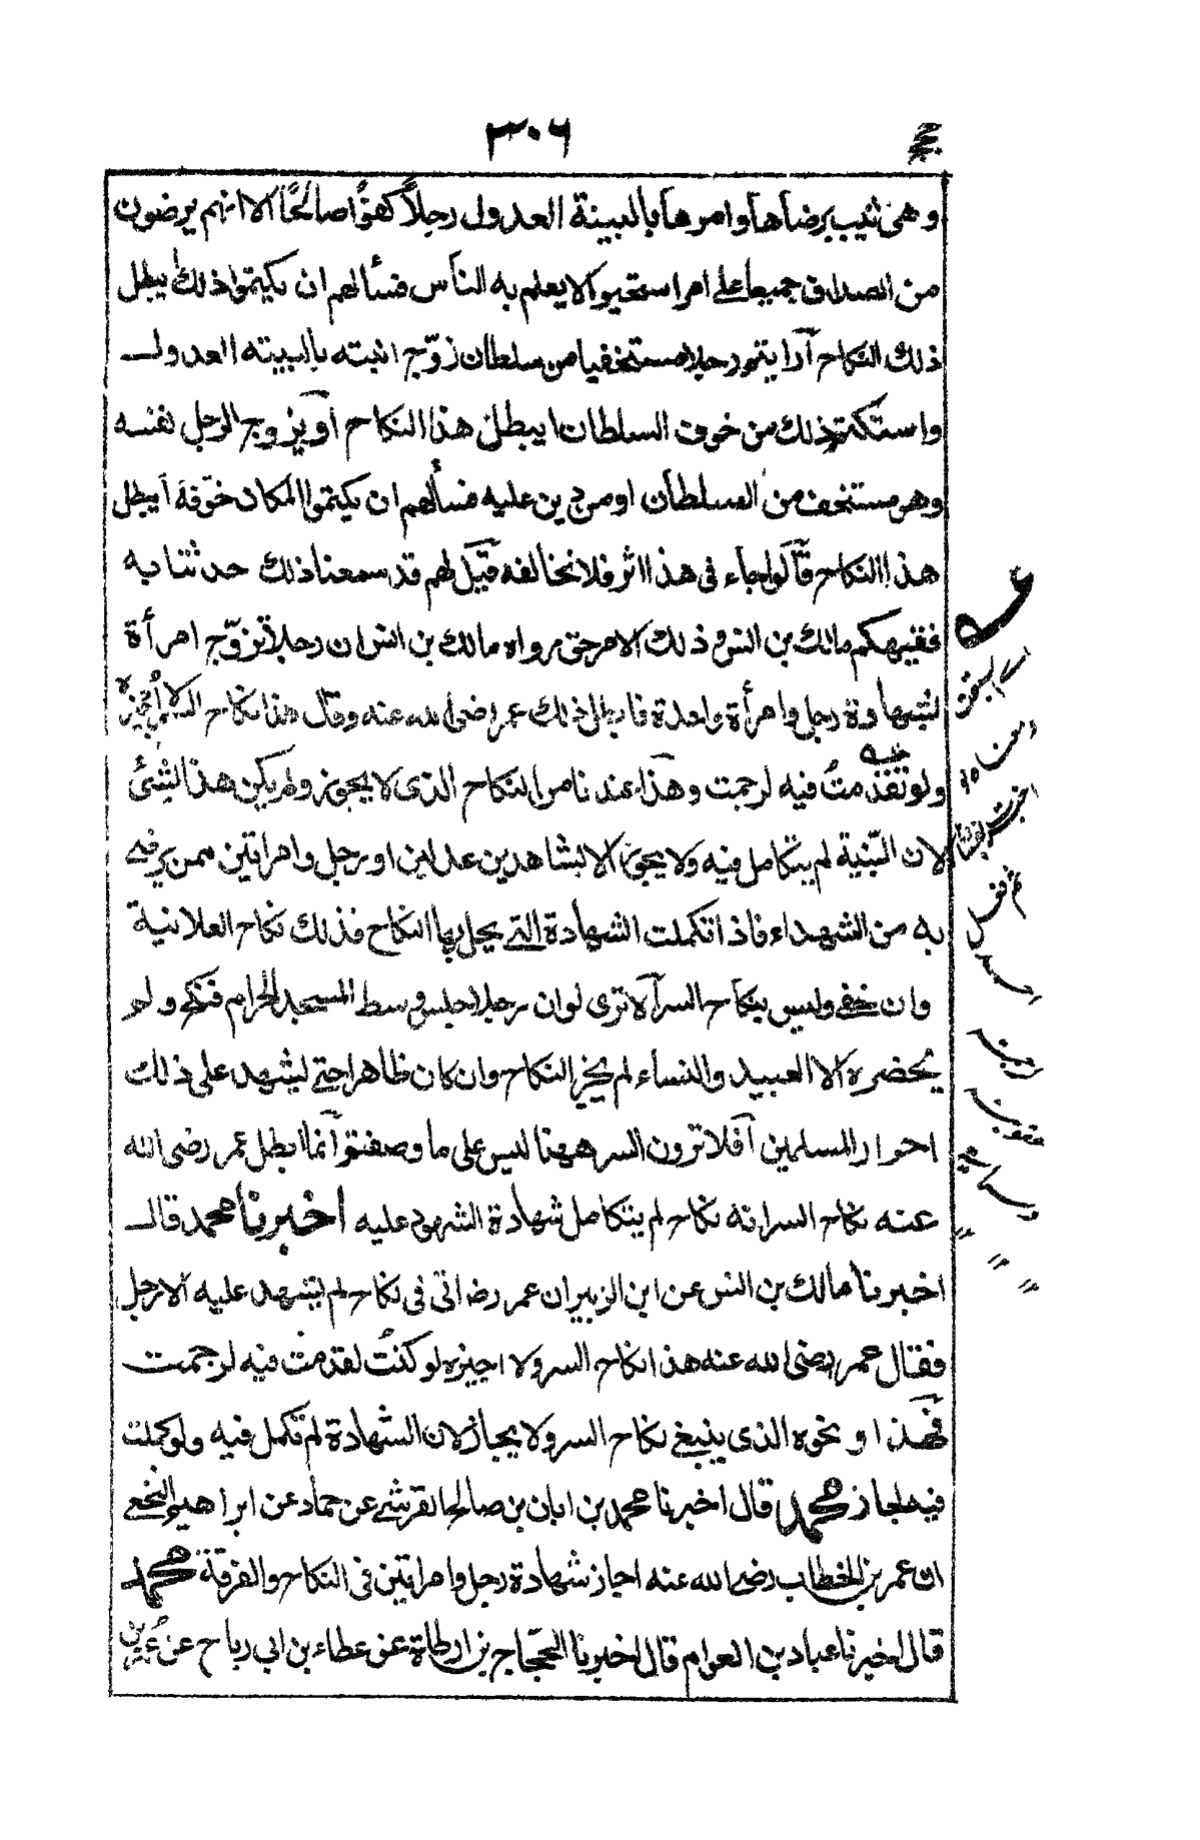 ٣٠٦
وهى ثيب برضاها وامرها بالبينة العدول رجلاً كفوًا صالحًا الا انهم يرضون
من الصداق جميعا على امر استحيوا لا يعلم به الناس فسألهم ان يكتموا ذلك ايبطل
ذلك النكاح أرايتم رجلا مستخفيا من سلطان زوّج ابنته بالبينه العدول
واستكتم ذلك من خوف السلطان ايبطل هذا النكاح أو يزوج الرجل نفسه
وهو مستخف من السلطان او من دين عليه فسألهم ان يكتموا المكان خوفه أيبطل
هذا النكاح قالوا جاء فى هذا اثر فلا نخالفه قيل لهم قد سمعنا ذلك حدثنا به
فقيهكم مالك بن انس وذلك الامر حق رواه مالك بن انس ان رجلا تزوّج امرأة
بشهادة رجل وامرأة واحدة فابطل ذلك عمر رضى الله عنه وقال هذا نكاح السر لا أُجيزه
ولو تقدمتُ فيه لرجمت وهذا عندنا من النكاح الذى لا يجوز ولم يكن هذا الشئ
لان البّنية لم يتكامل فيه ولا يجوز الا بشاهدين عدلين او رجل وامراتين ممن يرضى
به من الشهداء فاذا تكملت الشهادة التى يحل بها النكاح فذلك نكاح العلانية
وان خفى وليس بنكاح السر ألا ترى لو ان رجلا جلس وسط المسجد الحرام فنكح ولم
يُحضره الا العبيد والنساء لم يجز النكاح وان كان ظاهرا حتى يشهد على ذلك
احرار المسلمين أفلا ترون السر ههنا ليس على ما وصفتم انما ابطل عمر رضى الله
عنه نكاح السر انه نكاح لم يتكامل شهادة الشهود عليه اخبرنا محمد قال
اخبرنا مالك بن انس عن ابن الزبير ان عمر رض اتى فى نكاح لم يشهد عليه الا رجل
فقال عمر رضى الله عنه هذا نكاح السر ولا اجيزه لو كنتُ تقدمت فيه لرجمت
فهذا و نحوه الذى ينبغى نكاح السر ولا يجاز لان الشهادة لم تكمل فيه ولو كملت
فيه لجاز محمد قال اخبرنا محمد بن ابان بن صالح القرشى عن حماد عن ابراهيم النخعى
ان عمر بن الخطاب رضى الله عنه اجاز شهادة رجل وامراتين فى النكاح والفرقة محمد
قال اخبرنا عباد بن العوام قال اخبرنا الحجّاج بن ارطاة عن عطاء بن ابى رباح عن عُمر بن